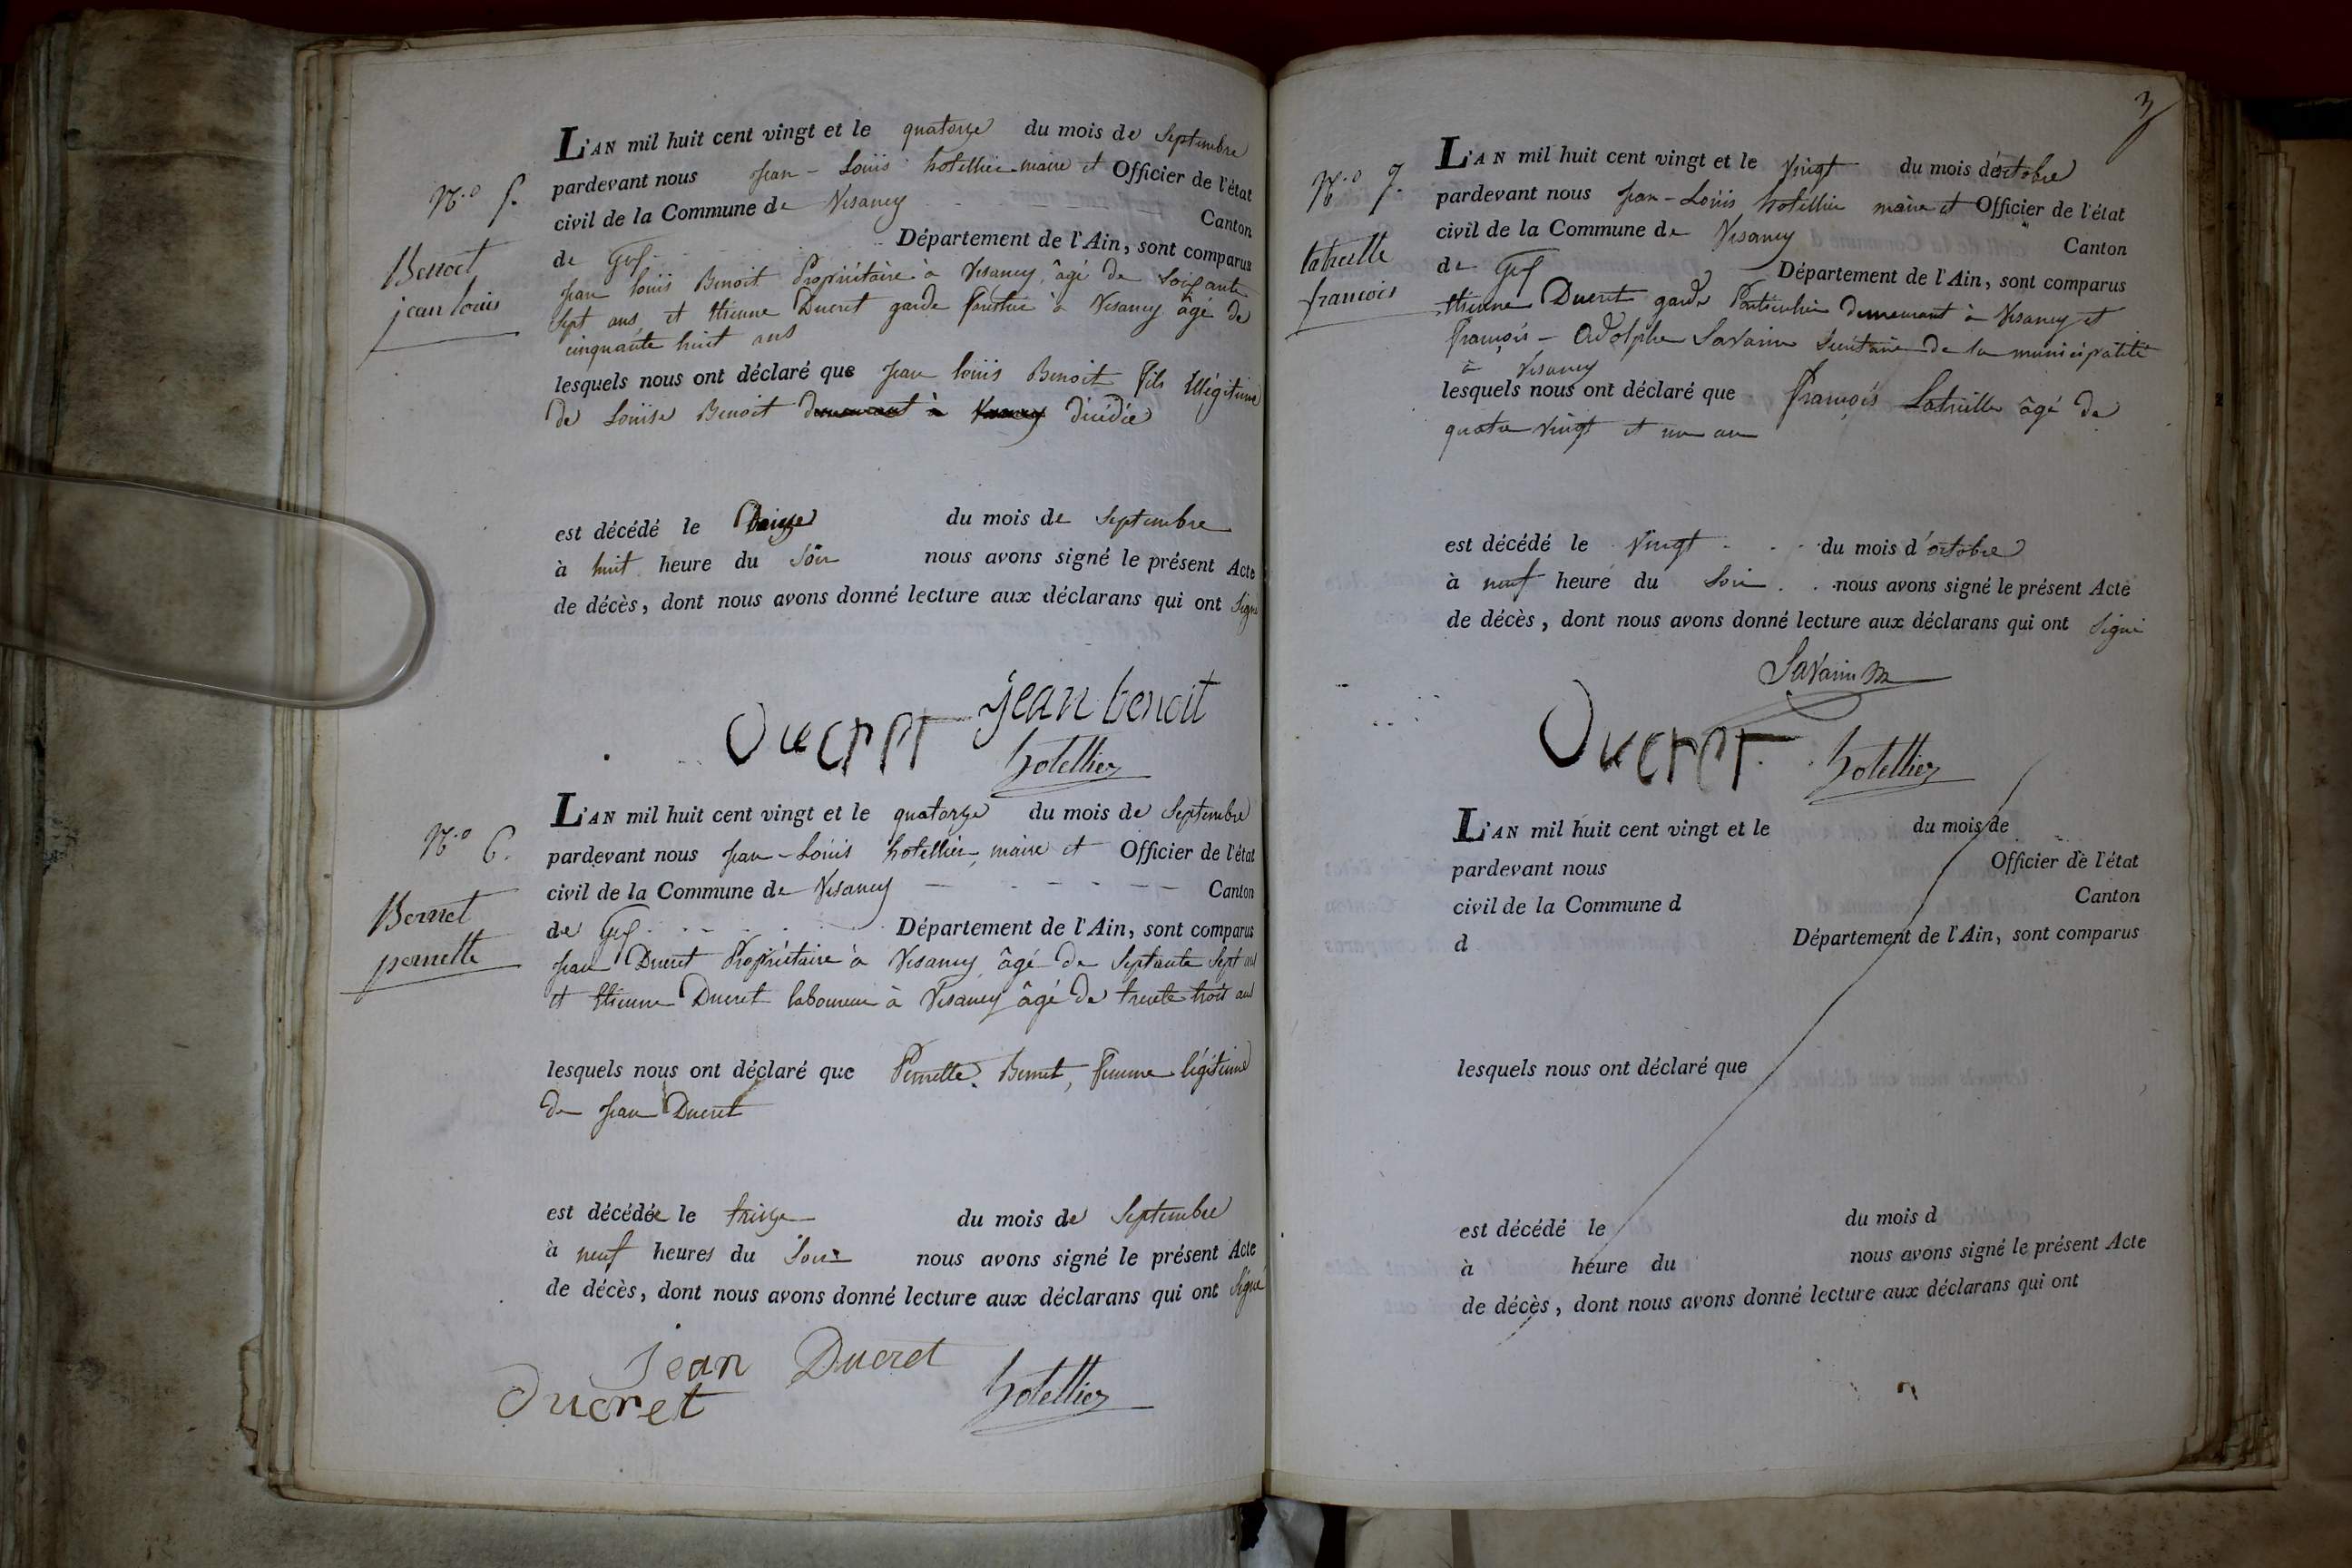 N.o 5.
Benoit
jean louis
L'AN mil huit cent vingt et le quatorze du mois de Septembre
pardevant nous jean - Louis hotellier maire et Officier de l'état
civil de la Commune de Vesancy Canton
de Gex Département de l'Ain, sont comparus
jean louis Benoit Propriétaire à Vesancy, âgé de Soixante
Sept ans, et Etienne Ducret garde forestier à Vesancy âgé de
cinquante huit ans
lesquels nous ont déclaré que jean louis Benoit fils illégitime
de Louise Benoit demeurant à Vesancy décédée
est décédé le Treize du mois de Septembre
à huit heure du Soir nous avons signé le présent Acte
de décès, dont nous avons donné lecture aux déclarans qui ont Signé
Ducret jean benoit
hotellier
N.o 6.
Bernet
pernette
L'AN mil huit cent vingt et le quatorze du mois de Septembre
pardevant nous jean - Louis hotellier, maire et Officier de l'état
civil de la Commune de Vesancy Canton
de Gex Département de l'Ain, sont comparus
jean Ducret Propriétaire à Vesancy, âgé de Septante Sept ans
et Etienne Ducret laboureur à Vesancy âgé de trente trois ans
lesquels nous ont déclaré que Pernette Bernet, femme légitime
de jean Ducret
est décédée le treize du mois de Septembre
à neuf heures du Soir nous avons signé le présent Acte
de décès, dont nous avons donné lecture aux déclarans qui ont Signé
Jean Ducret
Ducret hotellier
3
N.o 7.
latreille
francois
L'AN mil huit cent vingt et le vingt du mois d'octobre
pardevant nous jean - Louis hotellier maire et Officier de l'état
civil de la Commune de Vesancy Canton
de Gex Département de l'Ain, sont comparus
Etienne Ducret garde Particulier demeurant à Vesancy et
françois - Adolphe Savarin Secrétaire de la municipalité
à Vesancy
lesquels nous ont déclaré que François Latreille âgé de
quatre vingt et un an
est décédé le vingt du mois d'octobre
à neuf heure du Soir nous avons signé le présent Acte
de décès, dont nous avons donné lecture aux déclarans qui ont Signé
Savarin
Ducret hotellier
L'AN mil huit cent vingt et le du mois de
pardevant nous Officier de l'état
civil de la Commune d Canton
d Département de l'Ain, sont comparus
lesquels nous ont déclaré que
est décédé le du mois d
à heure du nous avons signé le présent Acte
de décès, dont nous avons donné lecture aux déclarans qui ont